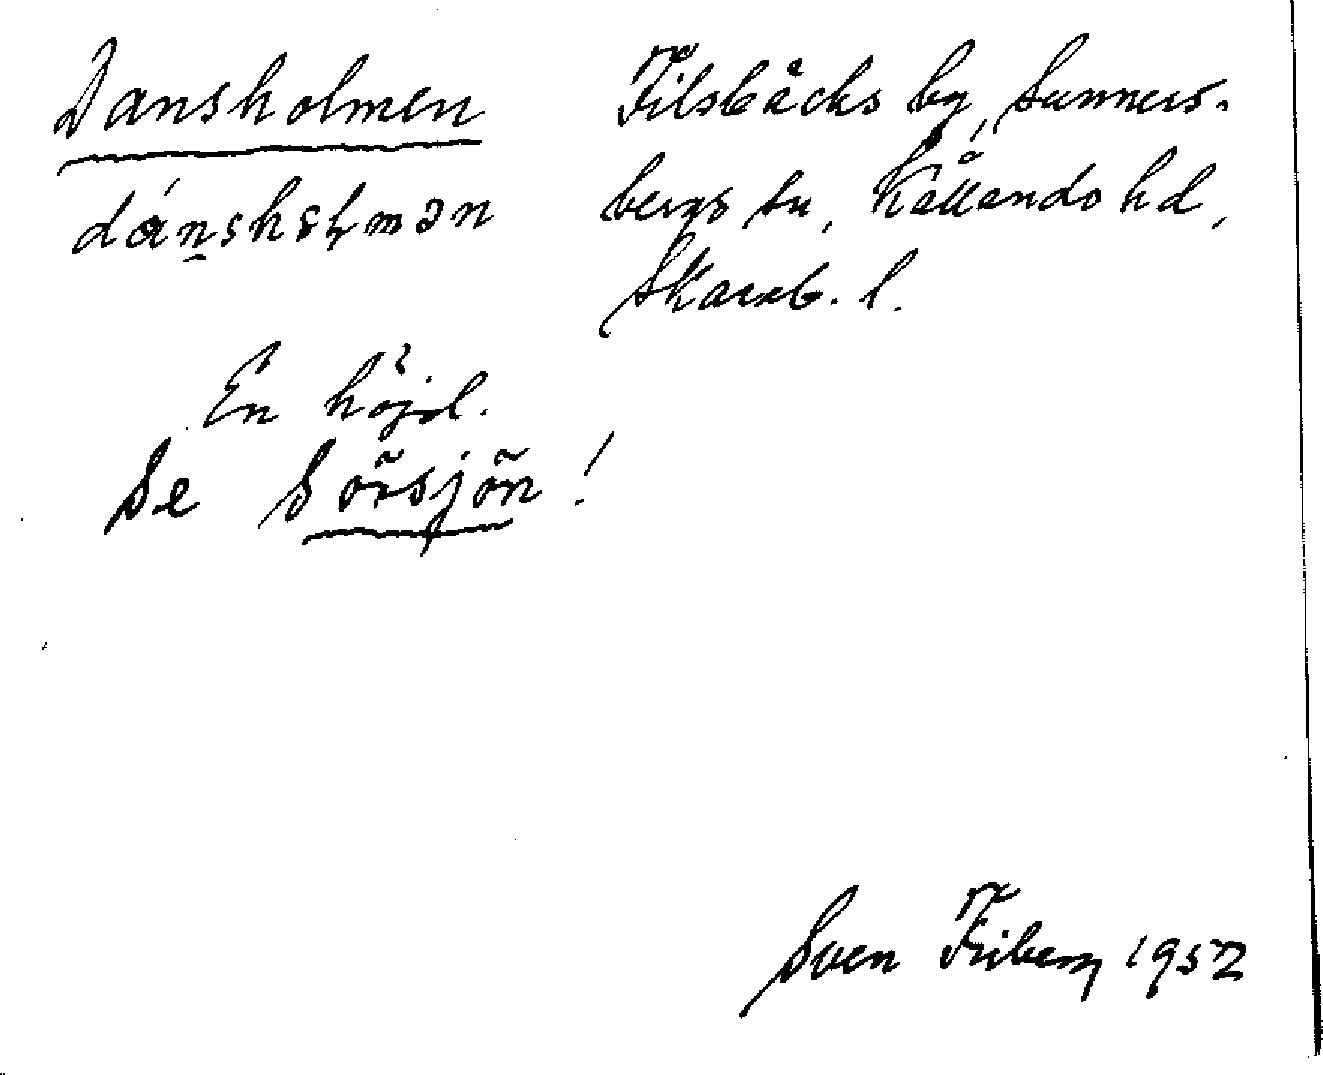 Dansholmen
Filsbäcks by, Sunners-
bergs sn, Kållands hd,
Skarab. l.
En höjd.
Se Sörsjön!
Sven Friberg 1952